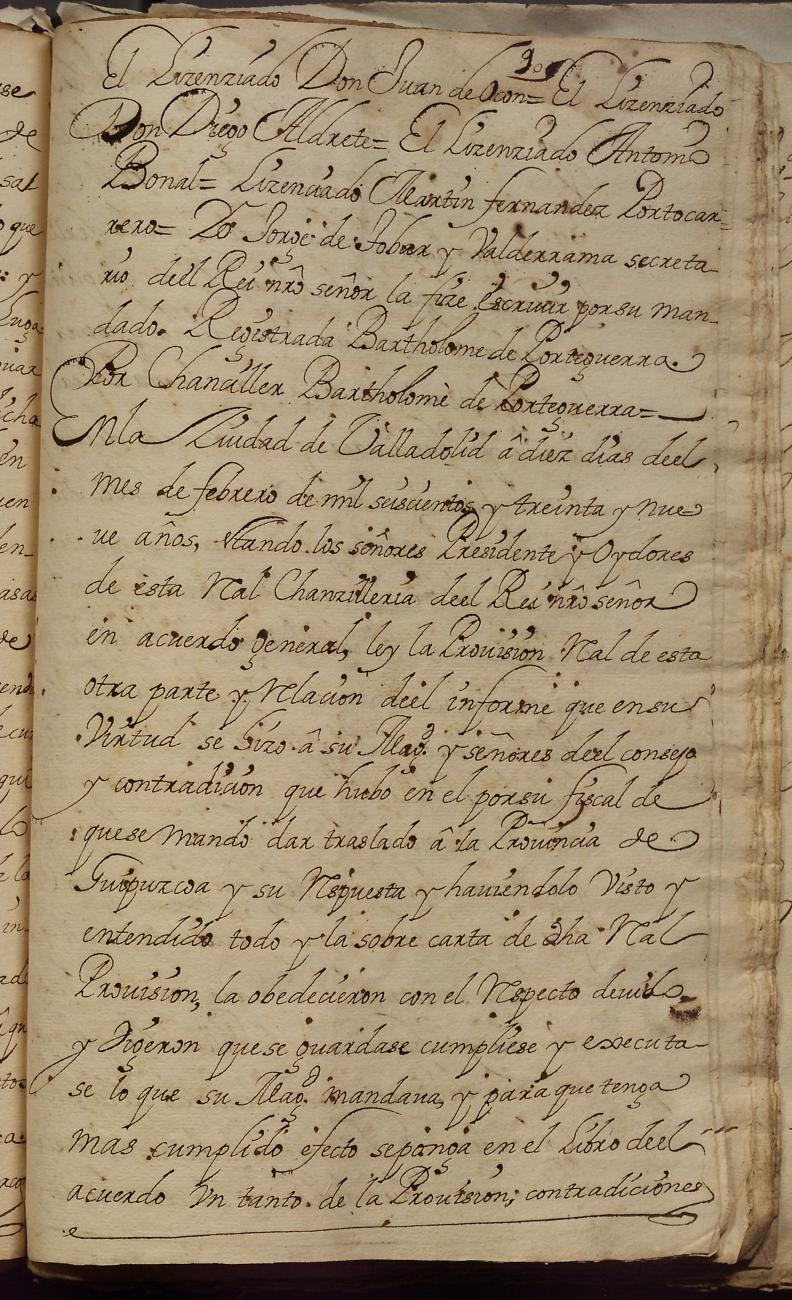 909
El Lizenziado Don Juan de Ocon= El Lizenziado
Don Diego Aldrete= El Lizenziado Antonio
Bonal= Lizenciado Martin fernandez Portocar-
rero= Dn Jorge de Tobar y Valderrama secreta-
rio deel Rei nrō señor la fize escriuir por su man-
dado. Registrada Bartholome de Porteguerra.
Por Chanziller Bartholomè de Porteguerra=
En la Ziudad de Valladolid â diez dias deel
mes de febrero de mil seiscientos y treinta y nue
ue años, stando los señores Presidente y Oydores
de esta Ral Chanzilleria deel Rei nrō señor
en acuerdo general, ley la Prouision Ral de esta
otra parte y Relacion deel informe que en su
Virtud se hizo â su Magd. y señores deel consejo
y contradicion que hubo en el por su fiscal de
que se mandò dar traslado â la Prouincia de
Guipuzcoa y su Respuesta y hauiendolo Visto y
entendido todo y la sobre carta de dha Ral
Prouision, la obedecieron con el Respecto deuido
y digeron que se guardase cumpliese y executa-
se lo que su Magd. mandaua, y para que tenga
mas cumplido efecto se ponga en el Libro deel
acuerdo Vn tanto de la Prouision; contradiciones